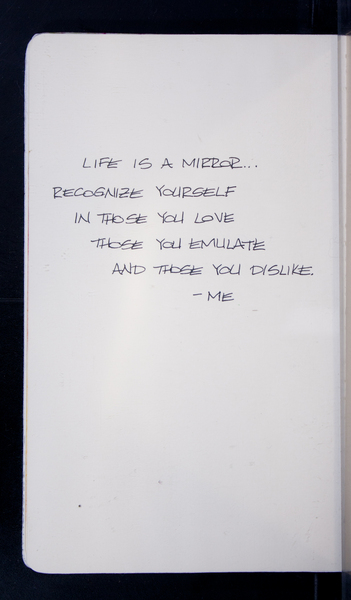 LIFE IS A MIRROR...
RECOGNIZE YOURSELF
IN THOSE YOU LOVE
THOSE YOU EMULATE
AND THOSE YOU DISLIKE.
- ME